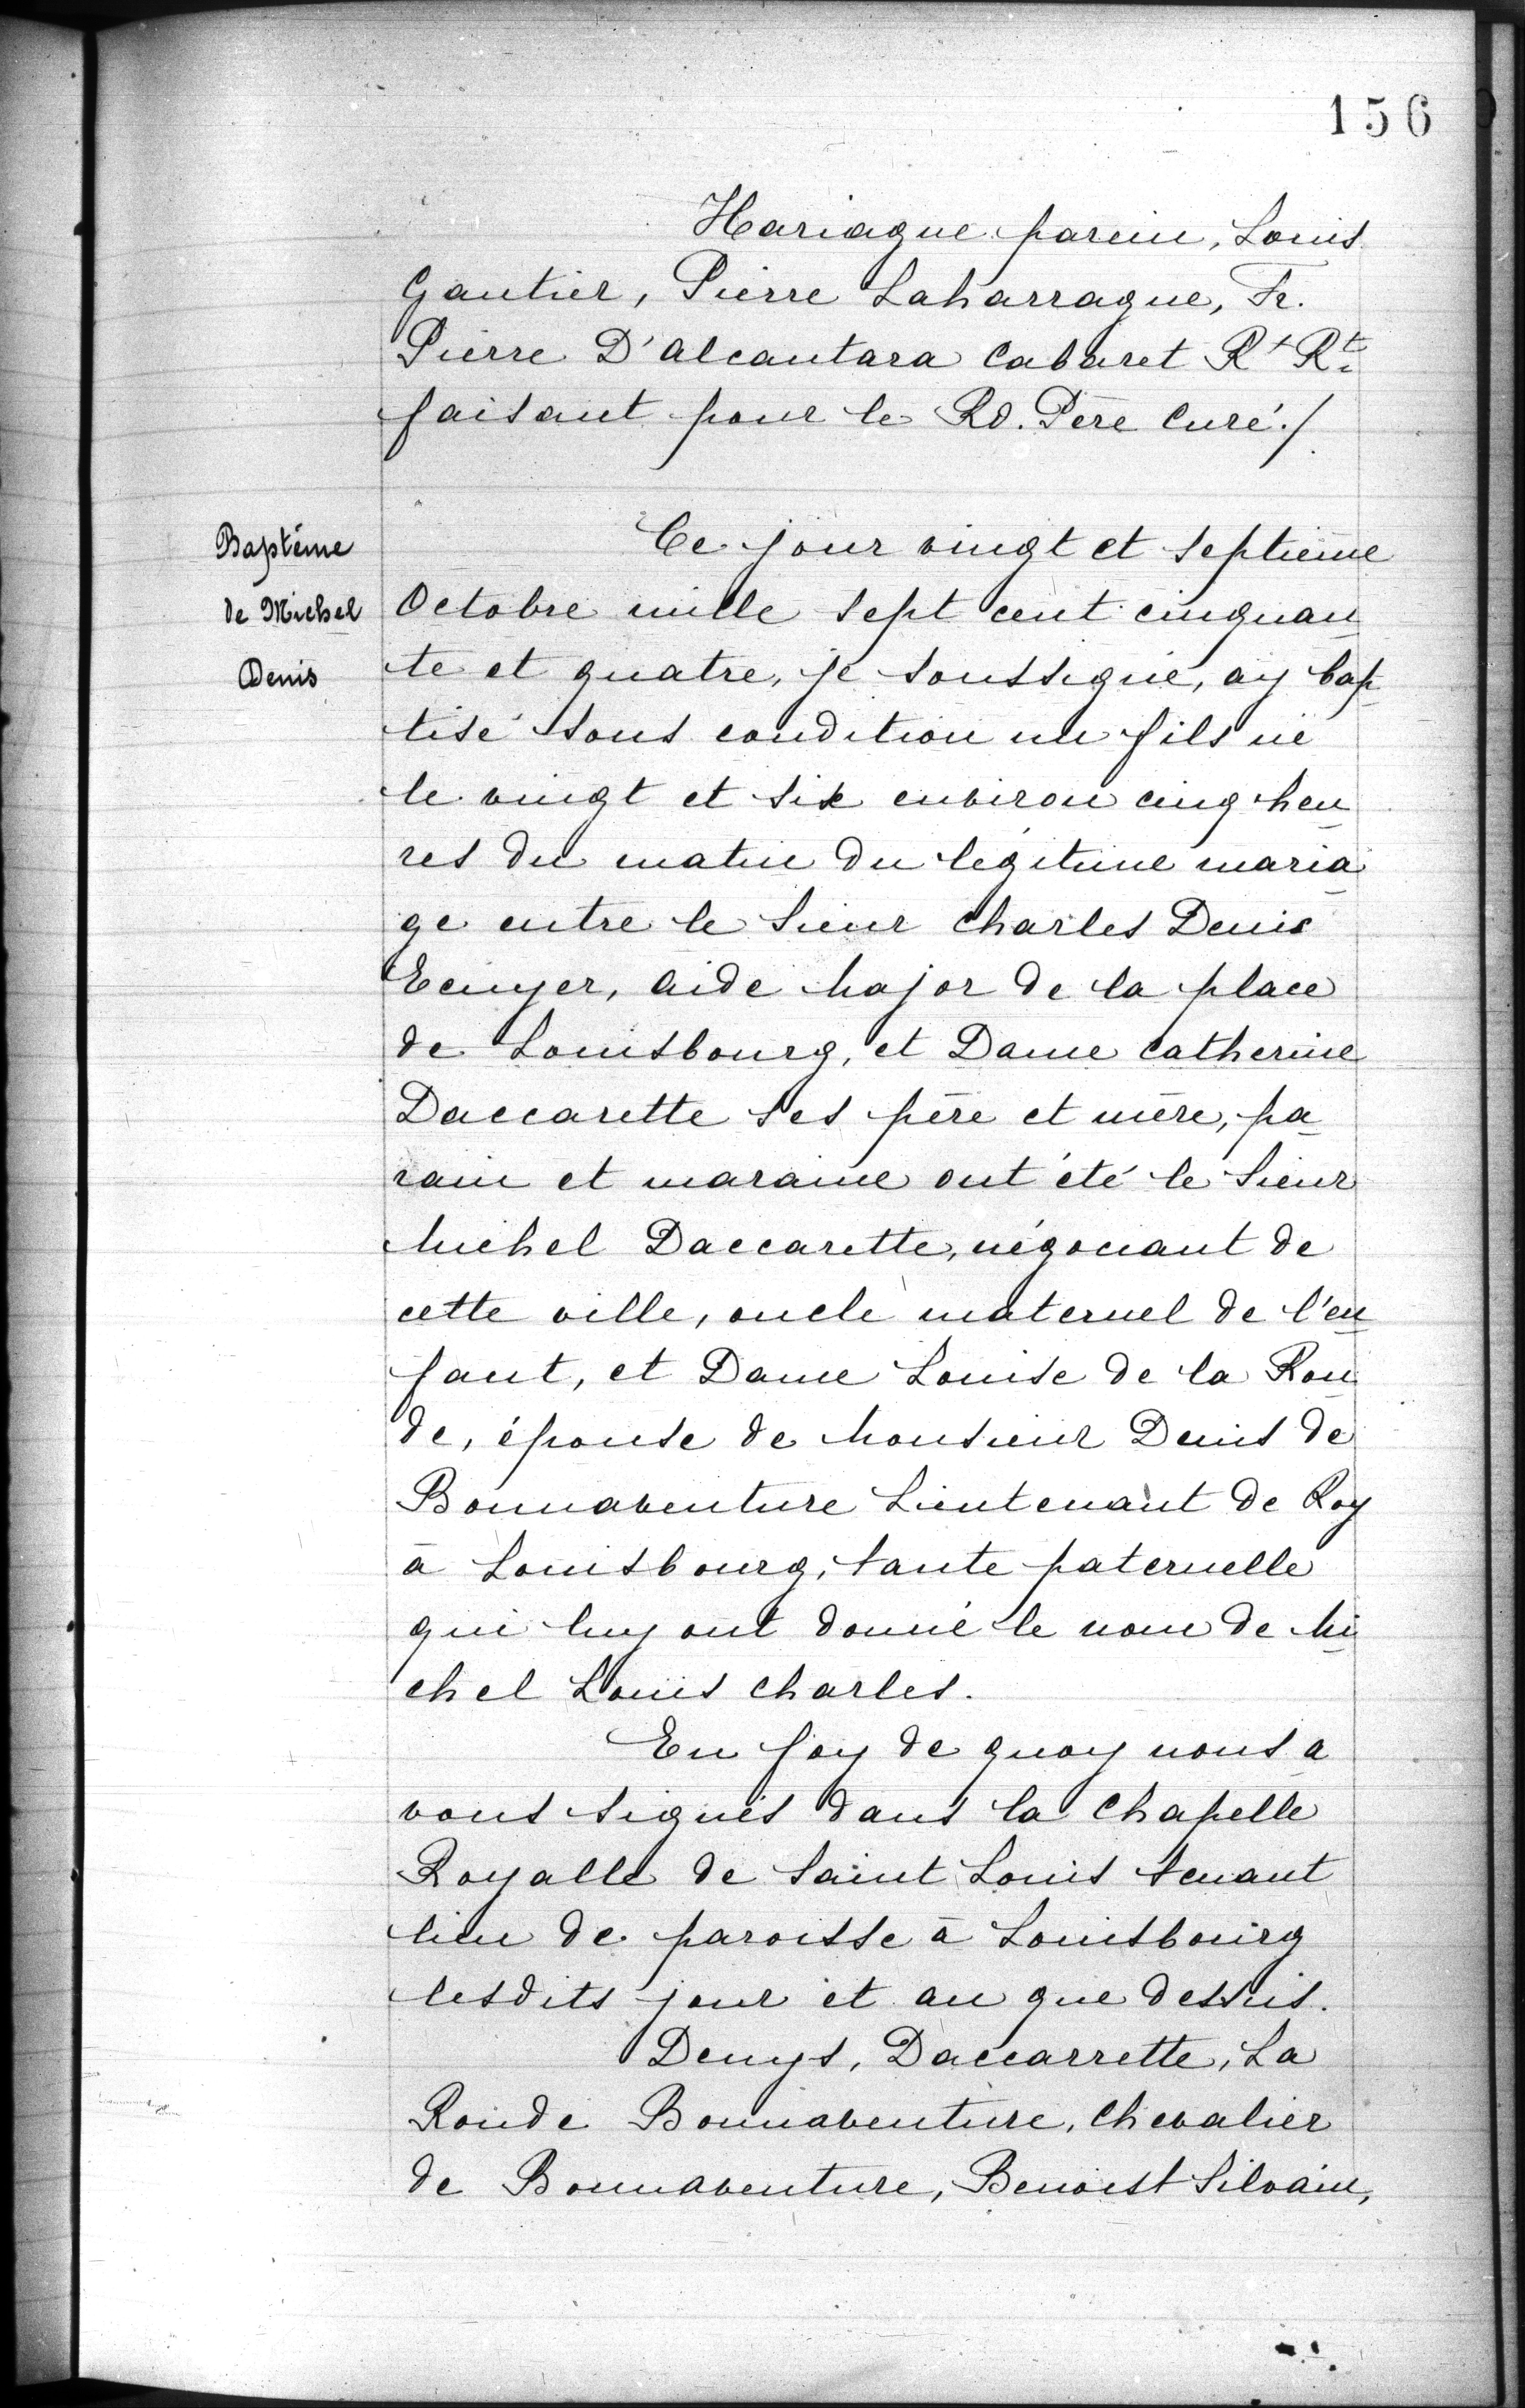 156
Hariague parein, Louis
Gautier, Pierre Laharrague, Fr.
Pierre D'alcantara Cabaret Rt Rt.
faisant pour le Rd. Père Curé./.
Baptême
de Michel
Denis
Ce jour vingt et septième
Octobre mille sept cent cinquan
te et quatre, je soussigné, ay bap
tisé sous condition un fils né
le vingt et six environ cinq heu
res du matin du légitime maria
ge entre le Sieur Charles Denis
Ecuyer, aide Major de la place
de Louisbourg, et Dame Catherine
Daccarette ses père et mère, pa
rain et maraine ont été le Sieur
Michel Daccarette, négociant de
cette ville, oncle maternel de l'en
fant, et Dame Louise de la Ron
de, épouse de Monsieur Denis de
Bonnaventure Lieutenant de Roy
à Louisbourg, tante paternelle
qui luy ont donné le nom de Mi
chel Louis Charles.
En foy de quoy nous a
vons signés dans la Chapelle
Royalle de Saint Louis tenant
lieu de paroisse à Louisbourg
lesdits jour et an que dessus.
Denys, Daccarrette, La
Ronde Bonnaventure, Chevalier
de Bonnaventure, Benoist Silvain,